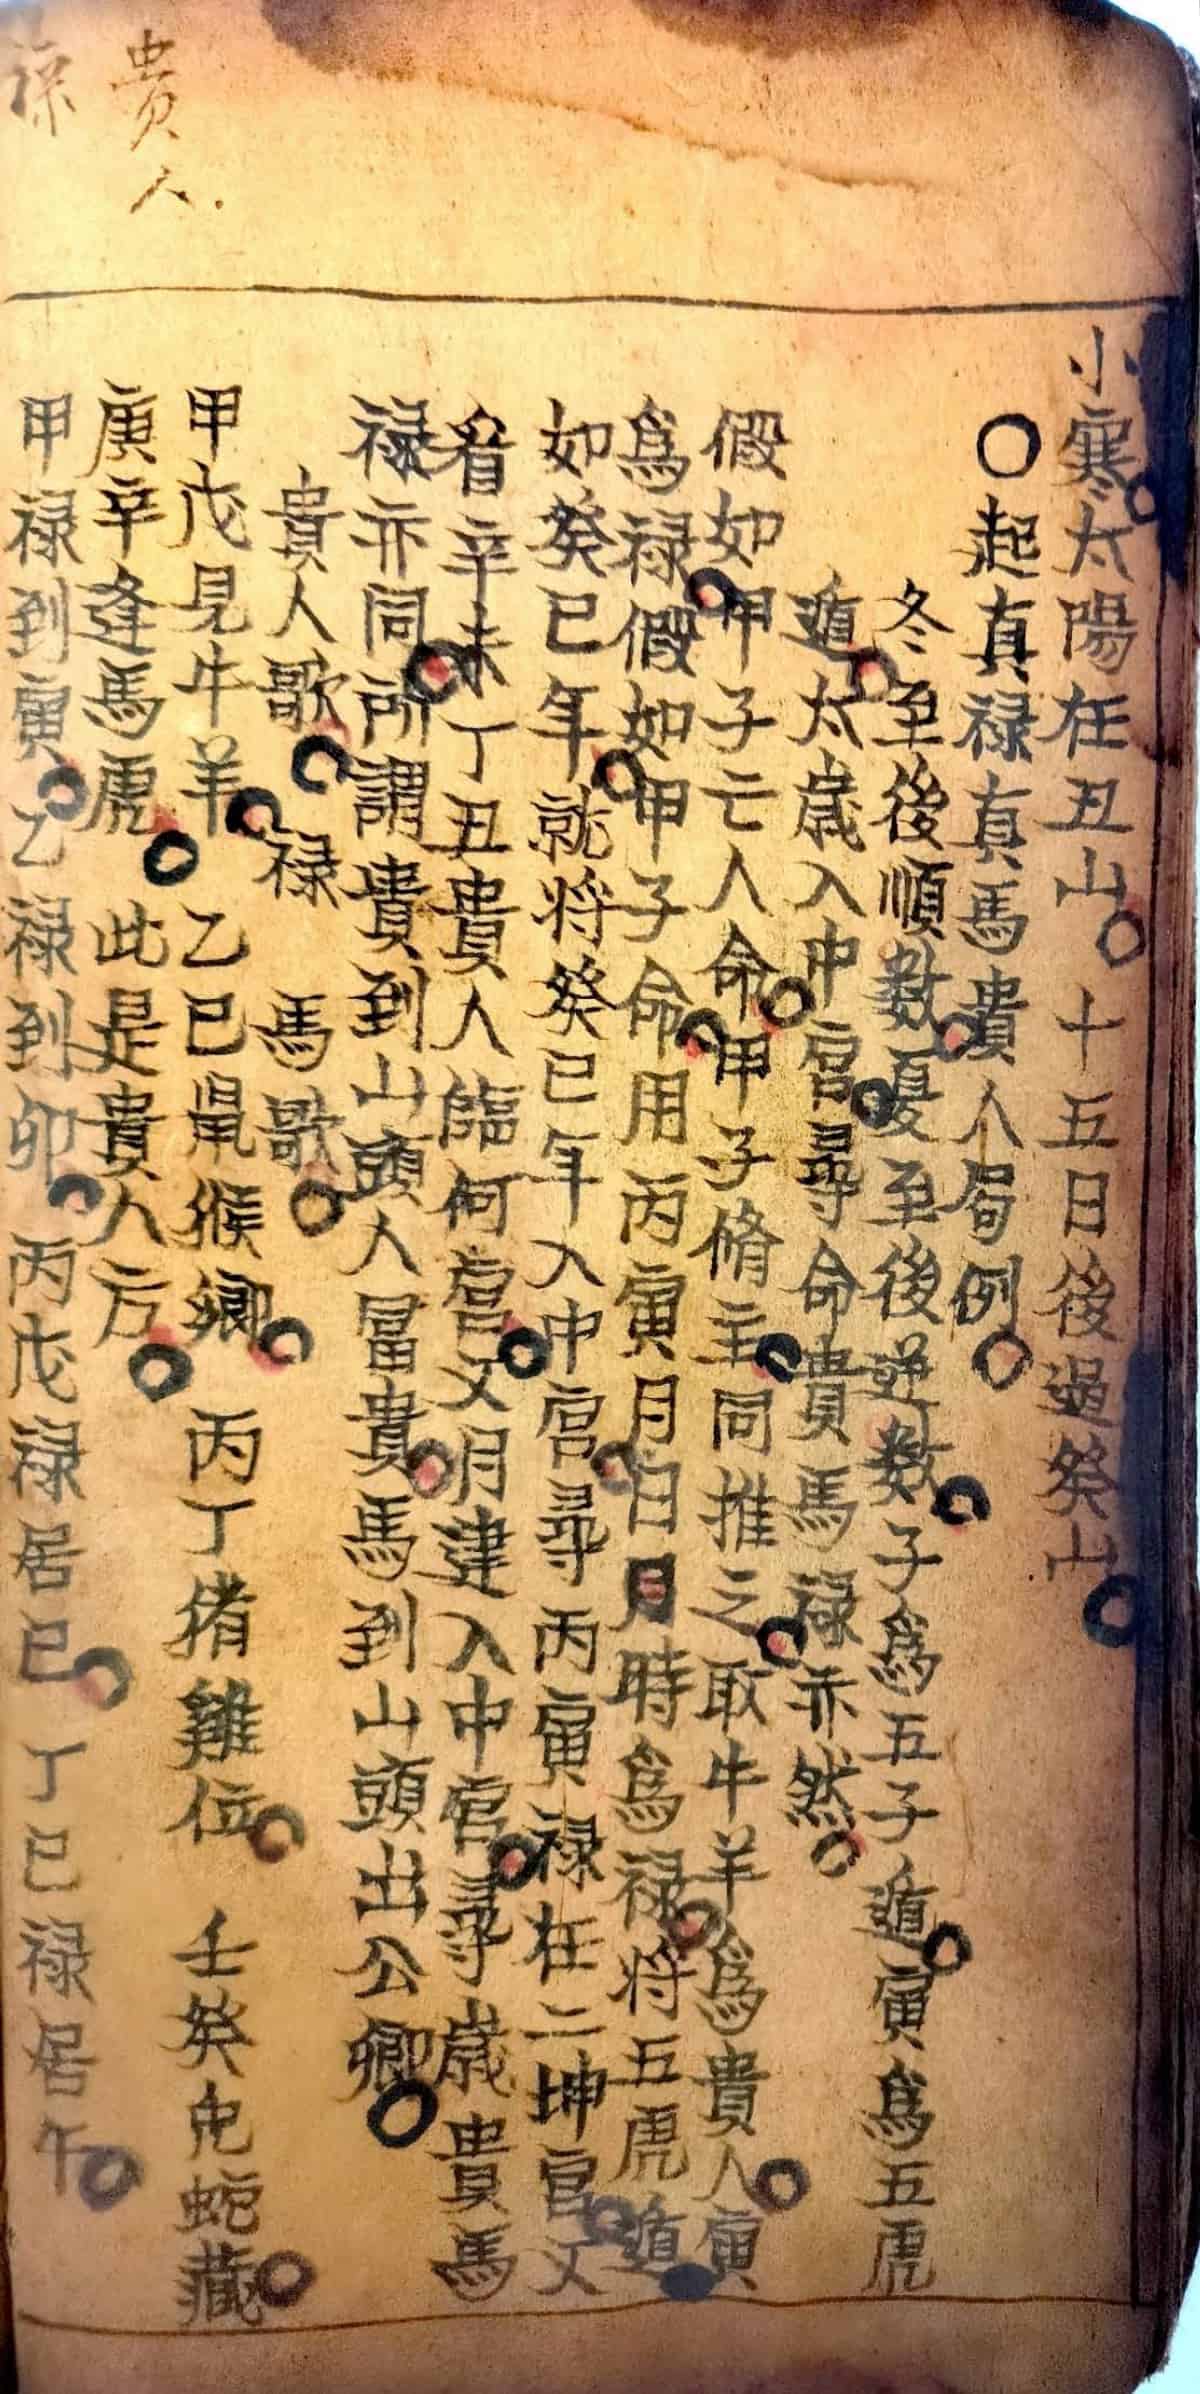 小寒太陽在丑山十五日後過癸山
〇起真禄真馬貴人局例
冬至後順数夏至後逆数子為五子遁寅為五虎
遁太歲入中宮尋命貴馬禄亦然
假如甲子亡人命甲子脩主同推之取牛羊為貴人寅
為禄假如甲子命用丙寅月日月時為禄将五虎遁
如癸巳年就将癸巳年入中宮尋丙寅禄在二坤宮又
看辛未丁丑貴人臨何宮又月建入中宮尋歲貴馬
禄亦同所謂貴到山頭人冨貴馬到山頭出公卿
貴人歌 禄 馬歌
甲戊見牛羊 乙己鼠猴鄉 丙丁猪雞位 壬癸兔蛇藏
庚辛逢馬虎 此是貴人方
甲禄到寅 乙禄到卯 丙戊禄居巳 丁己禄居午
貴人
禄